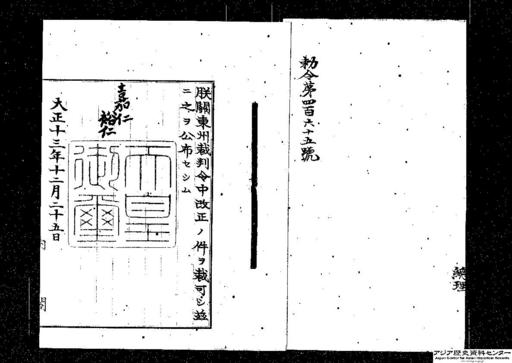 勅令第四百六十五號
朕關東州裁判令中改正ノ件ヲ裁可シ茲
ニ之ヲ公布セシム
嘉仁
裕仁
天皇
御璽
大正十三年十二月二十五日
内閣
アジア歴史資料センター
Japan Center for Asian Historical Records